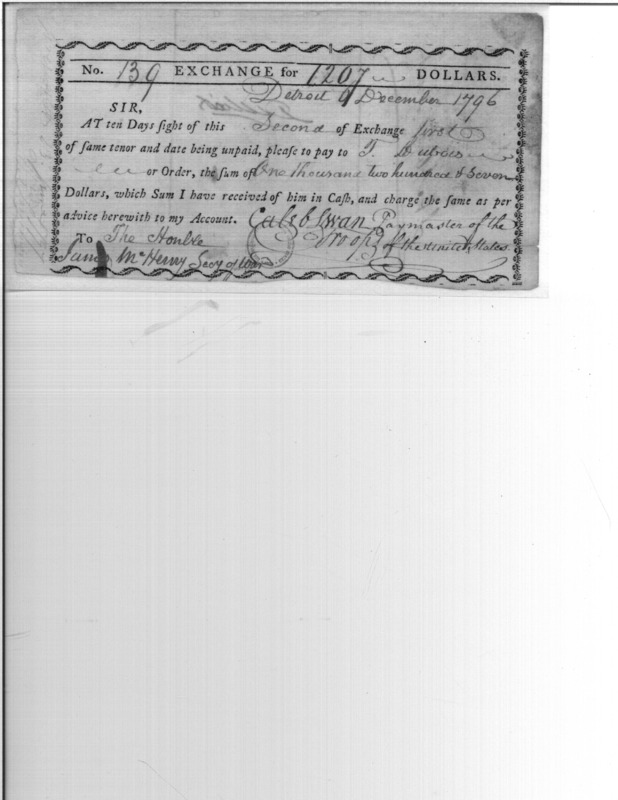 No. 139 EXCHANGE for 1207 DOLLARS.
Detroit 9 December 1796
SIR,
AT ten Days ſight of this Second of Exchange first
of ſame tenor and date being unpaid, pleaſe to pay to T. Dubois
or Order, the ſum of One thousand two hundred & Seven
Dollars, which Sum I have received of him in Caſh, and charge the ſame as per
advice herewith to my Account. Caleb Swan Paymaster of the
Troops of the United States
To The Honble
James McHenry Secy of War